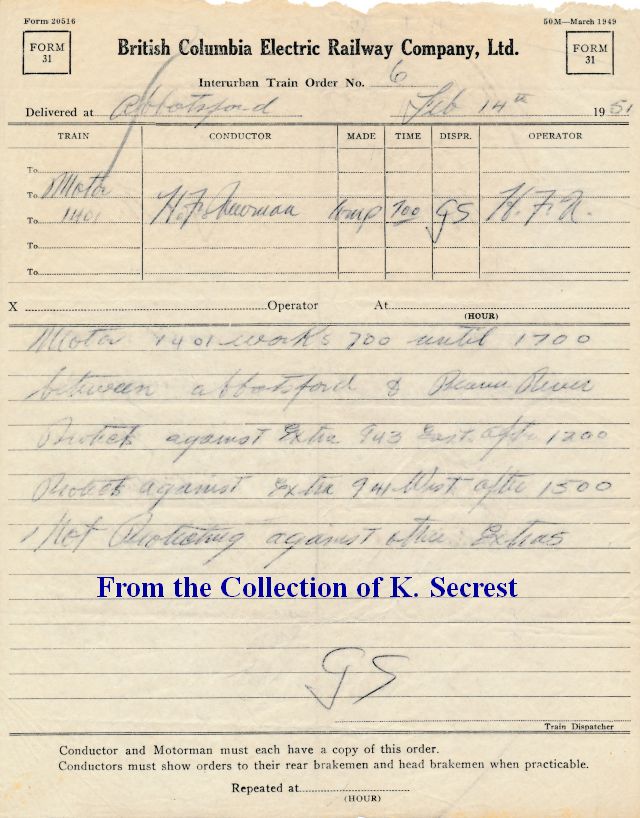 Form 20516
50M—March 1949
FORM
31
British Columbia Electric Railway Company, Ltd.
FORM
31
Interurban Train Order No. 6
Delivered at Abbotsford Feb 14th 1951
TRAIN CONDUCTOR MADE TIME DISPR. OPERATOR
To
To Motor
To 1401 H.F. Comp 700 GS H. F. N.
To
To
X Operator At
(HOUR)
Motor 1401 works 700 until 1700
between Abbotsford & River
Protect against Extra 943 East after 1200
Protect against Extra 941 West after 1500
Not Protecting against other Extras
From the Collection of K. Secrest
GS
Train Dispatcher
Conductor and Motorman must each have a copy of this order.
Conductors must show orders to their rear brakemen and head brakemen when practicable.
Repeated at
(HOUR)